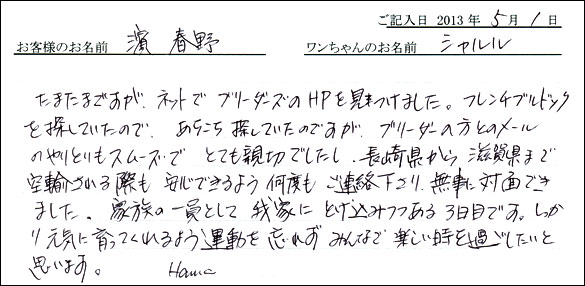 ご記入日 2013 年 5 月 1 日
お客様のお名前 濱 春野 ワンちゃんのお名前 シャルル
たまたまですが、ネットで ブリーダーズの HPを見つけました。フレンチブルドック
を探していたので、あちこち 探していたのですが、ブリーダーの方とのメール
のやりとりもスムーズで とても親切でしたし、長崎県から 滋賀県まで
空輸される際も 安心できるよう 何度も ご連絡下さり、無事に対面でき
ました。家族の一員として 我家に とけ込みつつある 3日目です。しっか
り元気に育ってくれるよう 運動を 忘れず みんなで 楽しい時を過ごしたいと
思います。 Hama